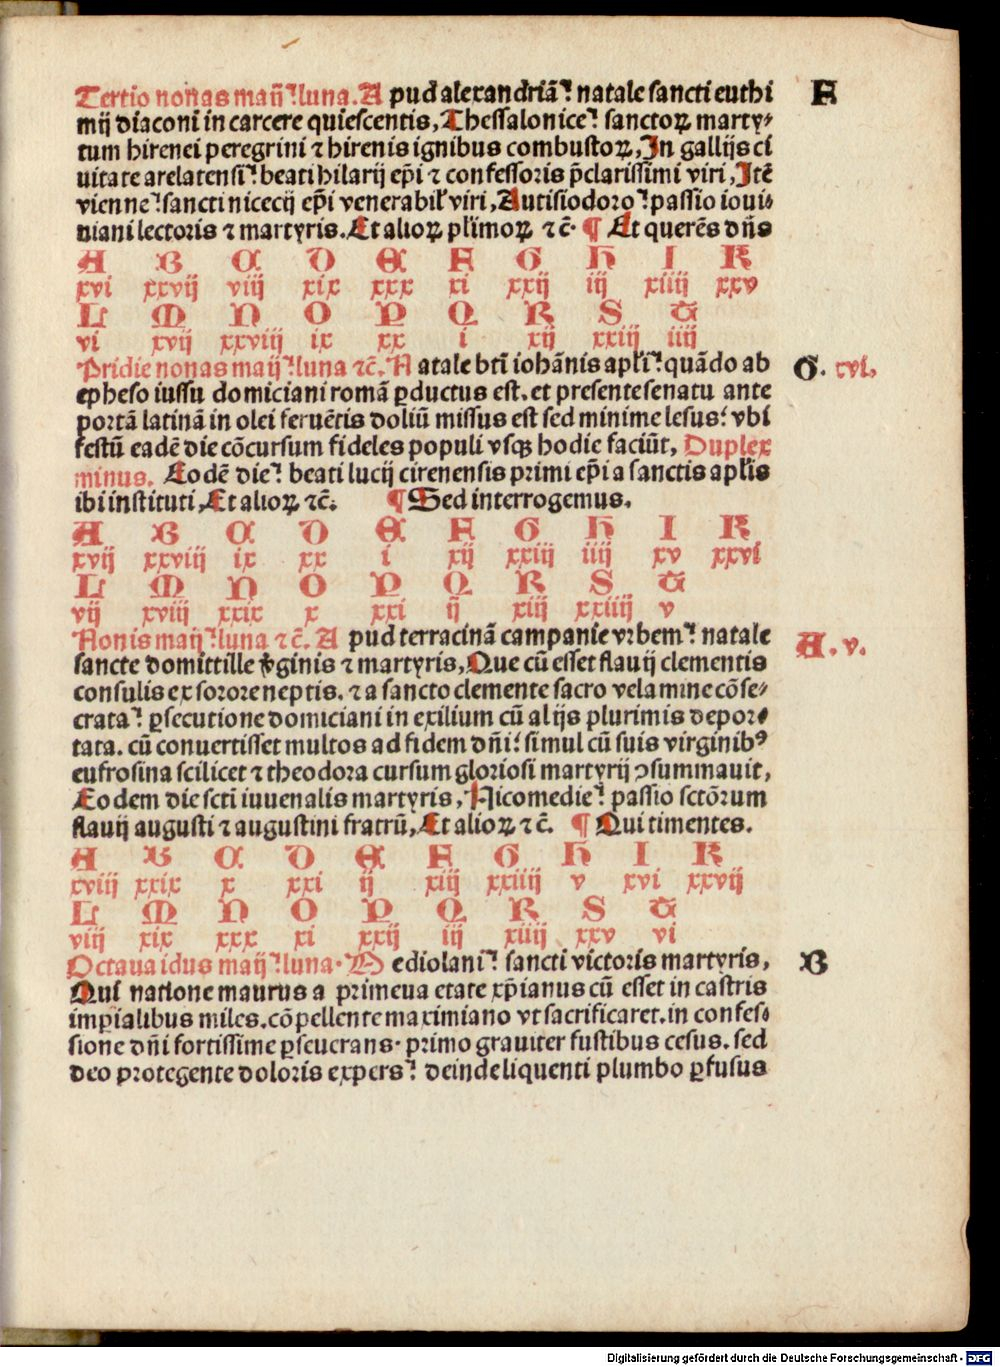 Tertio nonas maij: luna. A pud alexandriā: natale sancti euthi F
mij diaconi in carcere quiescentis, Thessalonice: sanctoꝝ marty-
rum hirenei peregrini ⁊ hirenis ignibus combustoꝝ, In gallijs ci
uitate arelatensi: beati hilarij ep̄i ⁊ confessoris p̄clarissimi viri, Itē
vienne: sancti nicecij ep̄i venerabil' viri, Autisiodoro: passio ioui-
niani lectoris ⁊ martyris. Et alioꝝ pl̄imoꝝ ⁊c̄. ¶ Et querēs dn̄s
A B C D E F G H I K
xvi xxvij viij xix xxx xi xxij iij xiiij xxv
L M N O P Q R S T
vi xvij xxviij ix xx i xij xxiij iiij
Pridie nonas maij: luna ⁊c̄. N atale bt̄i iohānis apl̄i: quādo ab G. xvi.
epheso iussu domiciani romā ꝑductus est. et presente senatu ante
portā latinā in olei feruētis doliū missus est sed minime lesus: vbi
festū eadē die cōcursum fideles populi vsqꝫ hodie faciūt, Duplex
minus. Eodē die: beati lucij cirenensis primi ep̄i a sanctis apl̄is
ibi instituti, Et alioꝝ ⁊c̄. ¶ Sed interrogemus.
A B C D E F G H I K
xvij xxviij ix xx i xij xxiij iiij xv xxvi
L M N O P Q R S T
vij xviij xxix x xxi ij xiij xxiiij v
Nonis maij: luna ⁊c̄. A pud terracinā campanie vrbem: natale A. v.
sancte domittille v̄ginis ⁊ martyris, Que cū esset flauij clementis
consulis ex sorore neptis. ⁊ a sancto clemente sacro velamine cōse-
crata: ꝑsecutione domiciani in exilium cū alijs plurimis depor-
tata. cū conuertisset multos ad fidem dn̄i: simul cū suis virginibꝰ
eufrosina scilicet ⁊ theodora cursum gloriosi martyrij ꝯsummauit,
Eodem die sct̄i iuuenalis martyris, Nicomedie: passio sctōrum
flauij augusti ⁊ augustini fratrū, Et alioꝝ ⁊c̄. ¶ Qui timentes.
A B C D E F G H I K
xviij xxix x xxi ij xiij xxiiij v xvi xxvij
L M N O P Q R S T
viij xix xxx xi xxij iij xiiij xxv vi
Octaua idus maij: luna. M ediolani: sancti victoris martyris, B
Qui natione maurus a primeua etate xp̄ianus cū esset in castris
imꝑialibus miles. cōpellente maximiano vt sacrificaret. in confes-
sione dn̄i fortissime ꝑseuerans. primo grauiter fustibus cesus. sed
deo protegente doloris expers: deinde liquenti plumbo ꝑfusus
Digitalisierung gefördert durch die Deutsche Forschungsgemeinschaft - DFG